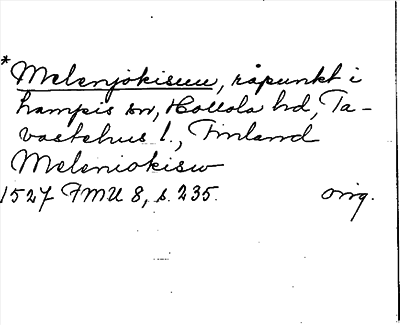 *Melenjokisuu, råpunkt i
Lampis sn, Hollola hd, Ta-
vastehus l., Finland
Meleniokisw
1527 FMU 8, s. 235. orig.